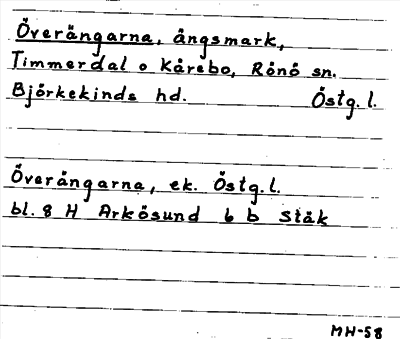 Överängarna, ängsmark,
Timmerdal o Kårebo, Rönö sn.
Björkekinds hd. Östg. l.
Överängarna, ek. Östg. l.
bl. 8 H Arkösund 6 b Stäk
MH-58